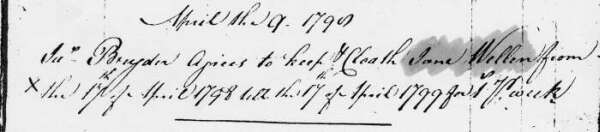 April the 9. 1798
Jnº Brayden Agrees to keep & Cloath Jane Wellen from
× the 17th of April 1798 till the 17th of April 1799 for 1s Pr week